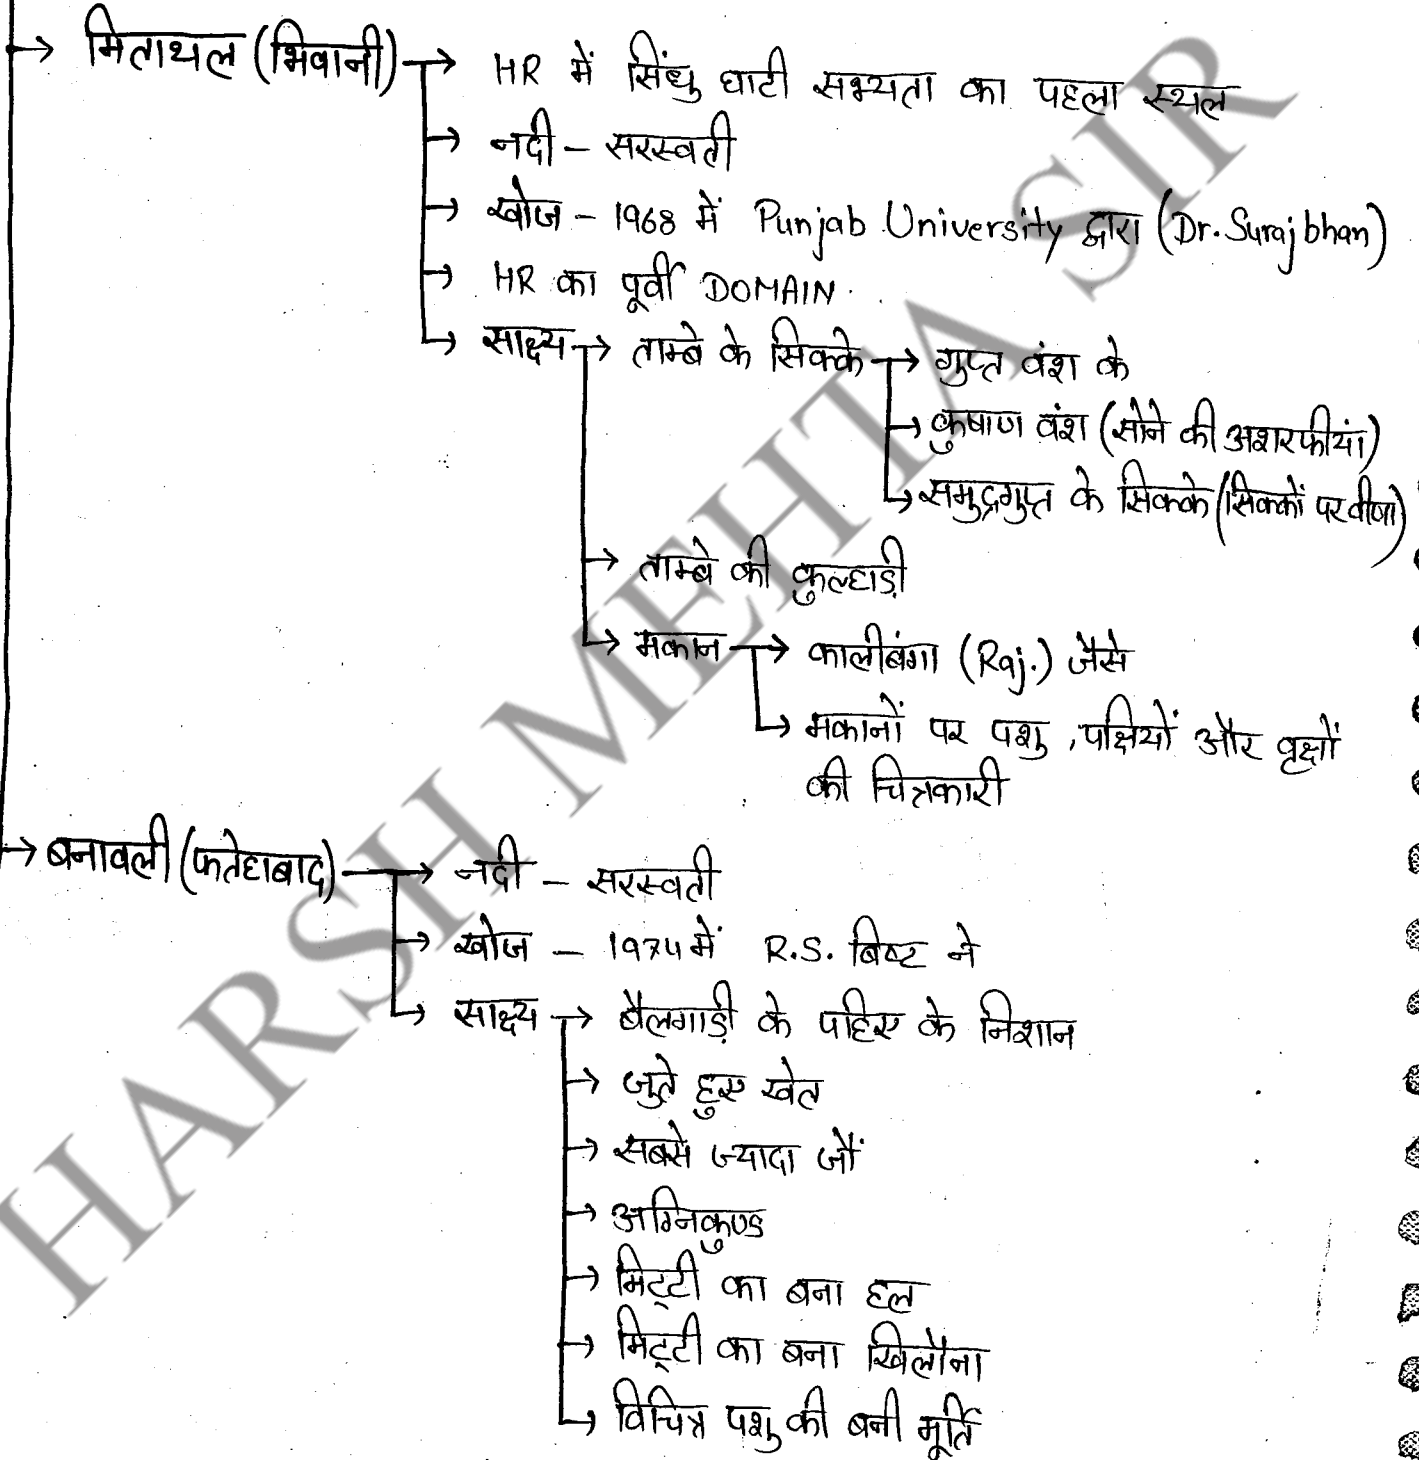 → मिताथल (भिवानी) → HR में सिंधु घाटी सभ्यता का पहला स्थल
→ नदी – सरस्वती
→ खोज – 1968 में Punjab University द्वारा (Dr. Surajbhan)
→ HR का पूर्वी DOMAIN
→ साक्ष्य → ताम्बे के सिक्के → गुप्त वंश के
→ कुषाण वंश (सोने की अशरफीयां)
→ समुद्रगुप्त के सिक्के (सिक्कों पर वीणा)
→ ताम्बे की कुल्हाड़ी
→ मकान → कालीबंगा (Raj.) जैसे
→ मकानों पर पशु, पक्षियों और वृक्षों
की चित्रकारी
→ बनावली (फतेहाबाद) → नदी – सरस्वती
→ खोज – 1974 में R.S. बिष्ट ने
→ साक्ष्य → बैलगाड़ी के पहिए के निशान
→ जुते हुए खेत
→ सबसे ज्यादा जौं
→ अग्निकुण्ड
→ मिट्टी का बना हल
→ मिट्टी का बना खिलौना
→ विचित्र पशु की बनी मूर्ति
HARSH MEHTA SIR